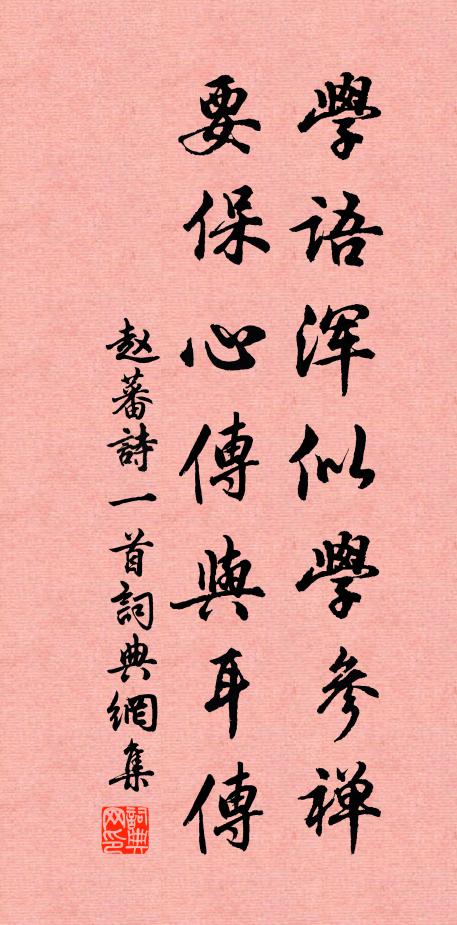 學語浑似學參禅
要保心傳與耳傳
赵蕃詩一首詞典網集
詞典网印